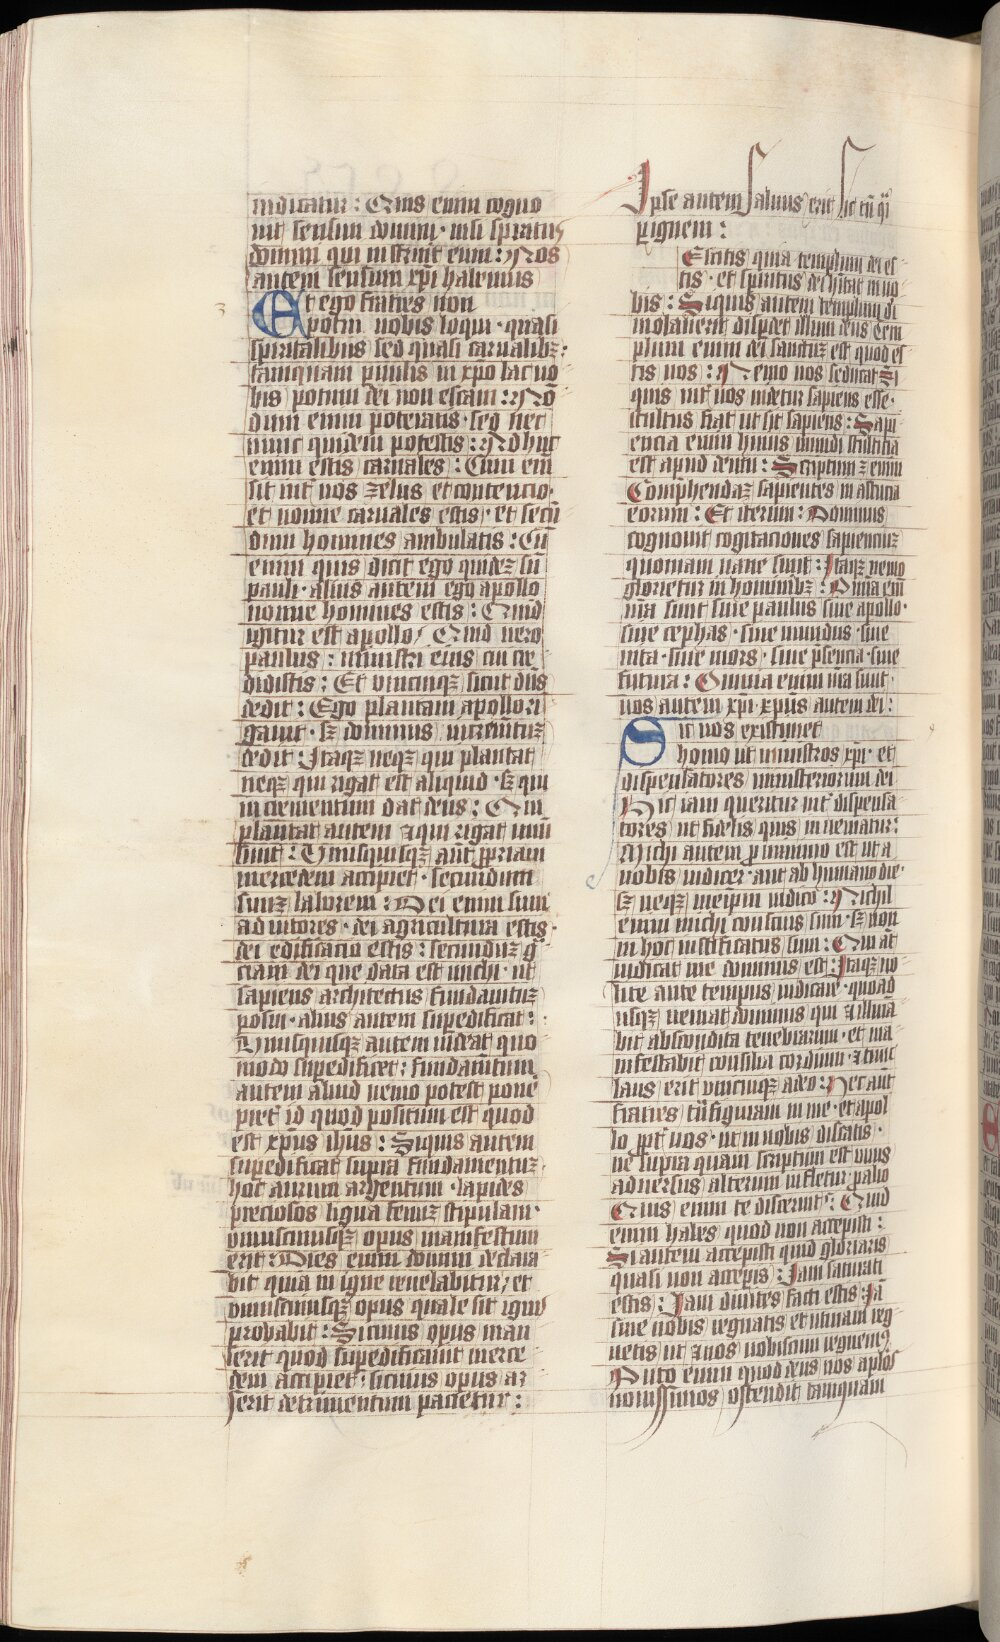 iudicatur : Quis enim cogno
uit sensum domini · nisi spiritus
domini qui instruit eum : Nos
autem sensum xpi habemus
3
Et ego fratres non
potui uobis loqui · quasi
spiritalibus sed quasi carnalibꝫ :
tamquam paruulis in xpo lac uo
bis potum dei non escam : Nō
dum enim poteratis · sed nec
nunc quidem potestis : Adhuc
enim estis carnales : Cum eni
sit int̉ uos zelus et contencio ·
et nonne carnales estis · et secū
dum homines ambulatis : Cū
enim quis dicit ego quideꝫ sū
pauli · alius autem ego apollo
nonne homines estis : Quid
igitur est apollo / Quid uero
paulus : ministri eius cui cre
didistis : Et vnicuiqꝫ sicut dn̄s
dedit : Ego plantaui apollo ri
gauit · sꝫ dominus incremētuꝫ
dedit Itaqꝫ neqꝫ qui plantat
neqꝫ qui rigat est aliquid · sꝫ qui
incrementum dat deus : Qui
plantat autem ⁊ qui rigat unū
sunt : Vnusquisqꝫ aūt ꝓpriam
mercedem accipiet · secundum
suuꝫ laborem : Dei enim sum̄
adiutores · dei agricultura estis ·
dei edificatio estis : secunduꝫ g̃
ciam dei que data est michi · ut
sapiens architectus fundamētuꝫ
posui · alius autem supedificat :
Vnusquisqꝫ autem uideat quo
modo supedificet : fundamētum
autem aliud nemo potest pone
pret̉ id quod positum est quod
est xpus ihus : Siquis autem
supedificat supra fundamentuꝫ
hoc aurum argentum · lapides
preciosos ligna fenuꝫ stipulam ·
vniuscuiusqꝫ opus manifestum
erit : Dies enim domini declara
bit quia in igne reuelabitur / et
vniuscuiusqꝫ opus quale sit ignis
probabit : Si cuius opus man
serit quod supedificauit merce
dem accipiet · si cuius opus ar
serit detrimentum pacietur :
Ipse autem saluus erit sic tn̄ q̄i
p ignem :
Escitis quia templum dei es
tis · et spiritus dei hītat in uo
bis : Siquis autem templum di
uiolauerit dispdet illum deus tem
plum enim dei sanctuꝫ est quod es
tis uos : Nemo uos seducat Si
quis int̉ uos uidetur sapiens esse ·
stultus fiat ut sit sapiens : Sapi
encia enim huius mundi stulticia
est apud deum : Scriptum ꝫ enim
Comprhendaꝫ sapientes in astucia
eorum : Et iterum : Dominus
cognouit cogitaciones sapienciuꝫ
quoniam uane sunt : Itaqꝫ nemo
glorietur in hominibꝫ : Omnia em̄
vr̄a sunt siue paulus siue apollo ·
siue cephas · siue mundus · siue
uita · siue mors · siue p̄sencia · siue
futura : Omnia enim vr̄a sunt ·
uos autem xpi · xpus autem dei :
Sic nos existimet
homo ut ministros xpi · et
dispensatores ministeriorum dei
Hic iam queritur int̉ dispensa
tores ut fidelis quis inueniatur :
Michi autem ꝓ minimo est ut a
uobis iudicer · aut ab humano die ·
sꝫ neqꝫ meipm iudico : Nichil
enim michi conscius sum · sꝫ non
in hoc iustificatus sum : Qui āt
iudicat me dominus est : Itaqꝫ no
lite ante tempus iudicare · quoad
usqꝫ ueniat dominus qui ⁊ illuīa
bit abscondita tenebrarum · et ma
nifestabit consilia cordium · ⁊ tunc
laus erit vnicuiqꝫ a deo : Hec aūt
fratres t̄nsfiguraui in me · et apol
lo ꝓpt̉ uos · ut in nobis discatis ·
ne supra quam scriptum est vnus
aduersus alterum infletur p alio
Quis enim te discernit : Quid
enim habes quod non accepisti :
Si autem accepisti quid gloriaris
quasi non acceperis : Iam saturati
estis : Iam diuites facti estis : Iā
sine nobis regnatis et utinam reg
netis ut ⁊ nos uobiscum regnemꝰ
Puto enim quod deus nos ap̄los
nouissimos ostendit tamquam